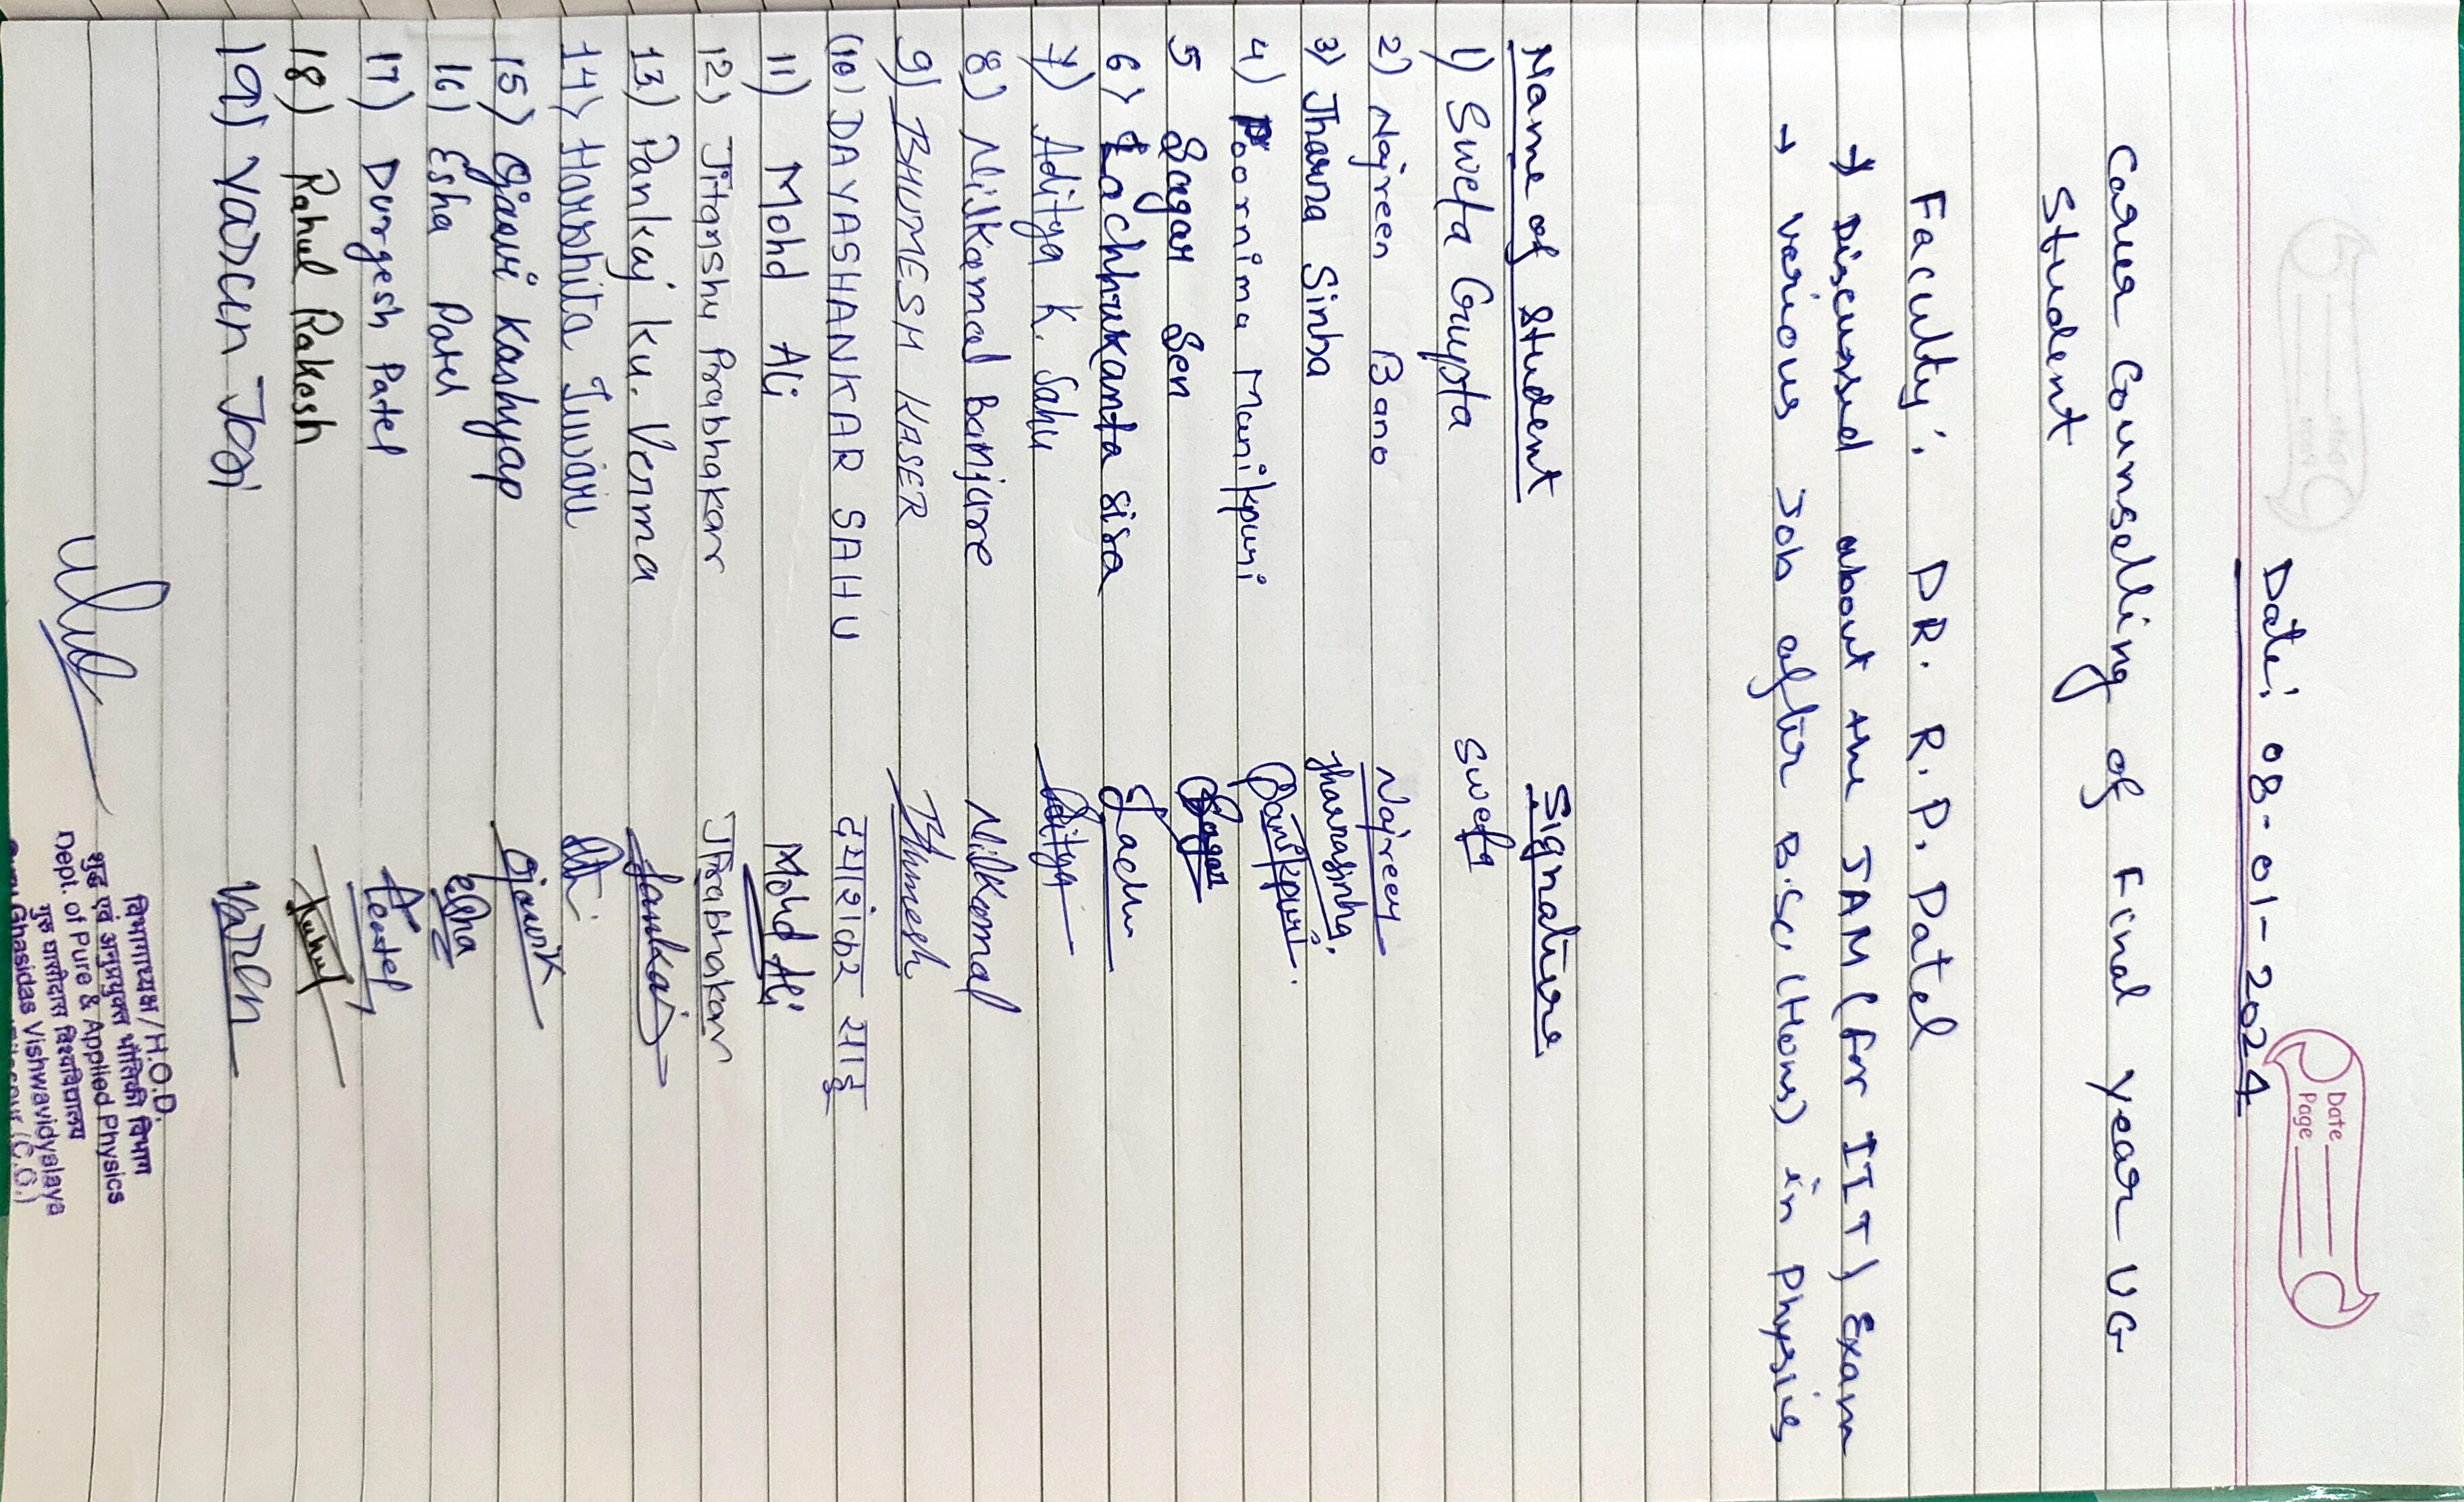 Date
Page
Date: 08-01-2024
Career Counselling of Final year UG
Student
Faculty: DR. R.P. Patel
→ Discussed about the JAM (for IIT) Exam
→ Various Job after B.Sc (Hons) in Physics
Name of Student Signature
1) Sweta Gupta Sweta
2) Najreen Bano Najreen
3) Jharna Sinha Jharnasinha.
4) Poornima Manikpuri Manikpuri.
5 Sagar Sen Sagar
6) Lachhukanta sisa Lachu
7) Aditya K. Sahu Aditya
8) Nilkamal Banjare Nilkamal
9) BHUMESH KASER Bhumesh
(10) DAYASHANKAR SAHU दयाशंकर साहू
11) Mohd Ali Mohd Ali
12) Jitanshu Prabhakar JPrabhakar
13) Pankaj Ku. Verma Pankaj
14) Harshita Tiwari
15) Ojasvi Kashyap
16) Esha Patel esha
17) Durgesh Patel
18) Rahul Rakesh Rahul
19) Varen Joji Varen
विभागाध्यक्ष/H.O.D.
शुद्ध एवं अनुप्रयुक्त भौतिकी विभाग
Dept. of Pure & Applied Physics
गुरु घासीदास विश्वविद्यालय
Guru Ghasidas Vishwavidyalaya
(C.G.)